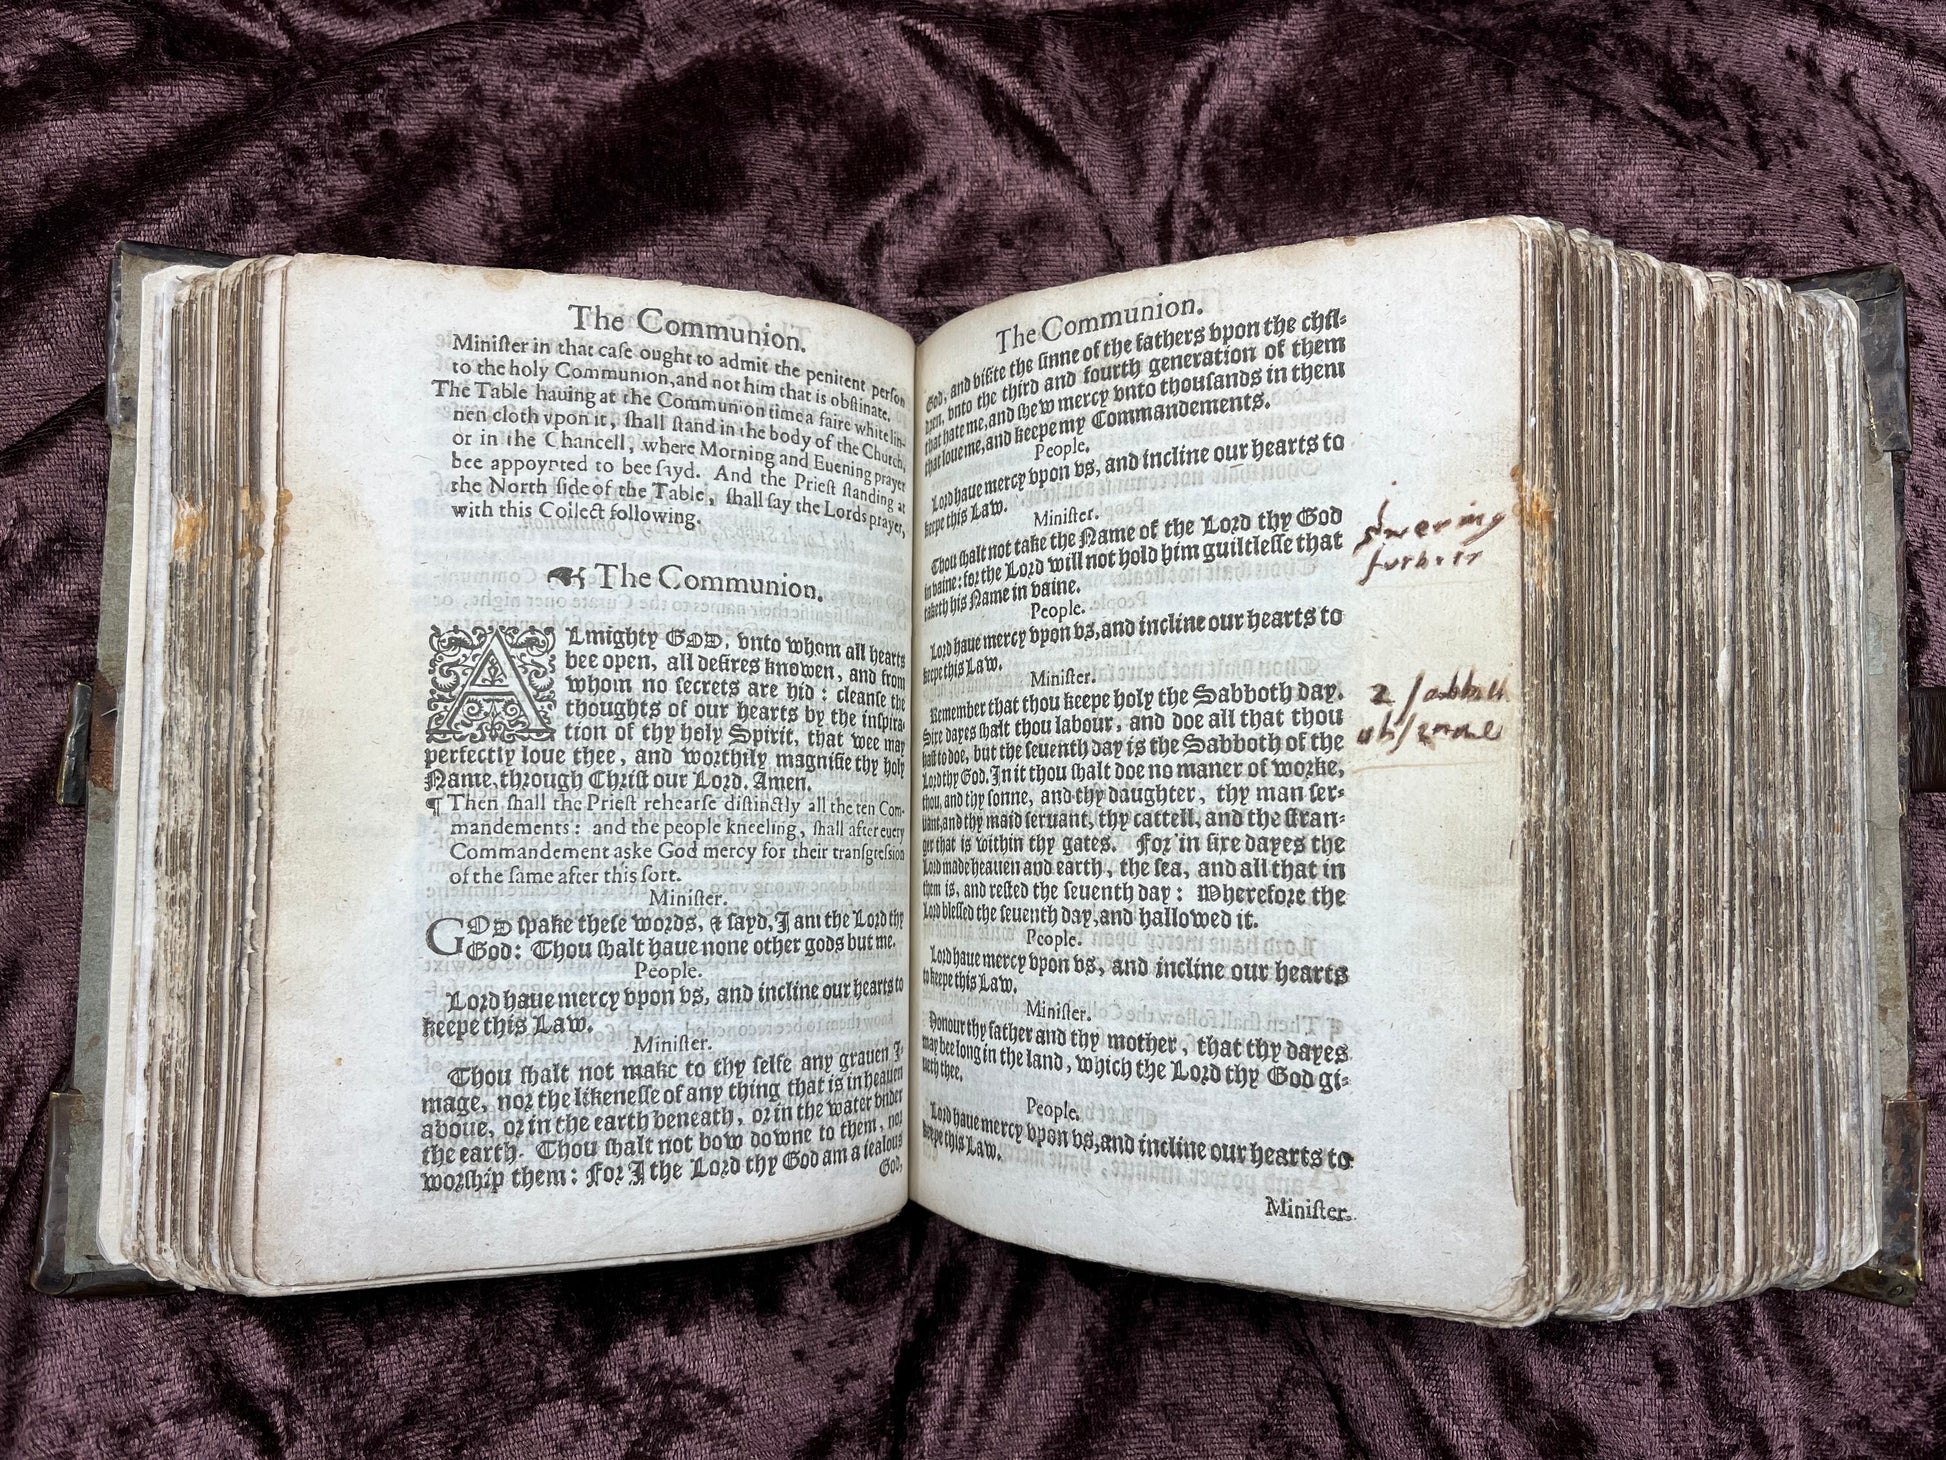 The Communion.
Miniſter in that caſe ought to admit the penitent perſon
to the holy Communion, and not him that is obſtinate.
The Table hauing at the Communion time a faire white lin-
nen cloth vpon it, ſhall ſtand in the body of the Church,
or in the Chancell, where Morning and Euening prayer
bee appoynted to bee ſayd. And the Prieſt ſtanding at
the North ſide of the Table, ſhall ſay the Lords prayer,
with this Collect following.
The Communion.
ALmighty GOD, vnto whom all hearts
bee open, all deſires knowen, and from
whom no ſecrets are hid: cleanſe the
thoughts of our hearts by the inſpira-
tion of thy holy Spirit, that wee may
perfectly loue thee, and worthily magnifie thy holy
Name, through Chriſt our Lord. Amen.
¶ Then ſhall the Prieſt rehearſe diſtinctly all the ten Com-
mandements: and the people kneeling, ſhall after euery
Commandement aske God mercy for their tranſgreſsion
of the ſame after this ſort.
Miniſter.
GOD ſpake theſe words, & ſayd, I am the Lord thy
God: Thou ſhalt haue none other gods but me.
People.
Lord haue mercy vpon vs, and incline our hearts to
keepe this Law.
Miniſter.
Thou ſhalt not make to thy ſelfe any grauen I-
mage, nor the likeneſſe of any thing that is in heauen
aboue, or in the earth beneath, or in the water vnder
the earth. Thou ſhalt not bow downe to them, nor
worſhip them: For I the Lord thy God am a iealous
God,
The Communion.
God, and viſite the ſinne of the fathers vpon the chil-
dren, vnto the third and fourth generation of them
that hate me, and ſhew mercy vnto thouſands in them
that loue me, and keepe my Commandements.
People.
Lord haue mercy vpon vs, and incline our hearts to
keepe this Law.
Miniſter.
Thou ſhalt not take the Name of the Lord thy God
in vaine: for the Lord will not hold him guiltleſſe that
taketh his Name in vaine.
People.
Lord haue mercy vpon vs, and incline our hearts to
keepe this Law.
Miniſter.
Remember that thou keepe holy the Sabboth day.
Sixe dayes ſhalt thou labour, and doe all that thou
haſt to doe, but the ſeuenth day is the Sabboth of the
Lord thy God. In it thou ſhalt doe no maner of worke,
thou, and thy ſonne, and thy daughter, thy man ſer-
uant, and thy maid ſeruant, thy cattell, and the ſtran-
ger that is within thy gates. For in ſixe dayes the
Lord made heauen and earth, the ſea, and all that in
them is, and reſted the ſeuenth day: Wherefore the
Lord bleſſed the ſeuenth day, and hallowed it.
People.
Lord haue mercy vpon vs, and incline our hearts
to keepe this Law.
Miniſter.
Honour thy father and thy mother, that thy dayes
may bee long in the land, which the Lord thy God gi-
ueth thee.
People.
Lord haue mercy vpon vs, and incline our hearts to
keepe this Law.
Miniſter.
2